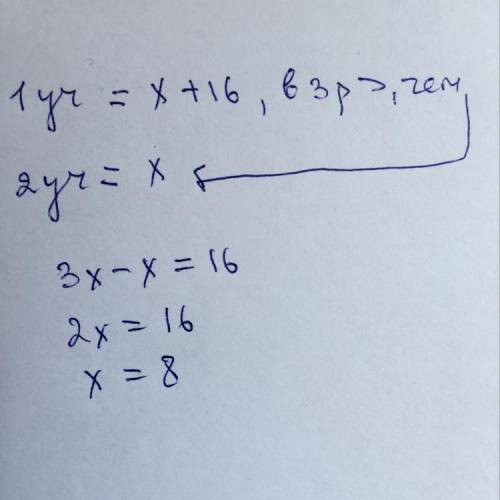 1 уч = x + 16, в 3 р >, чем
2 уч = x
3x - x = 16
2x = 16
x = 8